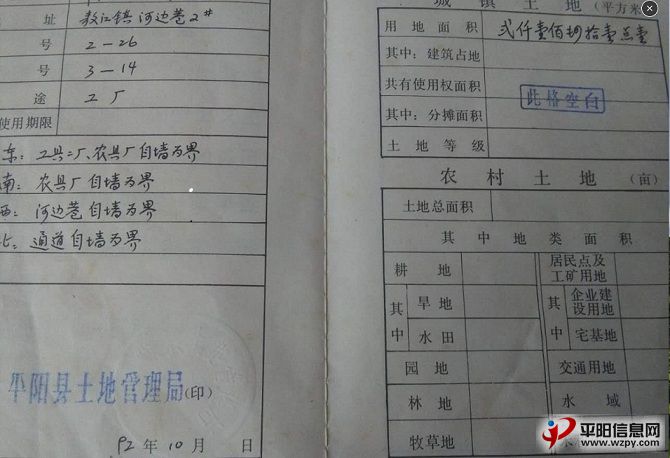 址 敖江镇河边巷2#
号 2-26
号 3-14
途 工厂
使用期限
东：工具二厂、农具厂自墙为界
南：农具厂自墙为界
西：河边巷自墙为界
北：通道自墙为界
平阳县土地管理局(印)
92 年 10 月 日
城镇土地（平方米
用地面积 弍仟壹佰捌拾壹点壹
其中：建筑占地
共有使用权面积
此格空白
其中：分摊面积
土地等级
农村土地（亩）
土地总面积
其中地类面积
耕地 居民点及工矿用地
其中 旱地 其中 企业建设用地
水田 宅基地
园地 交通用地
林地 水域
牧草地
平阳信息网
www.wzpy.com